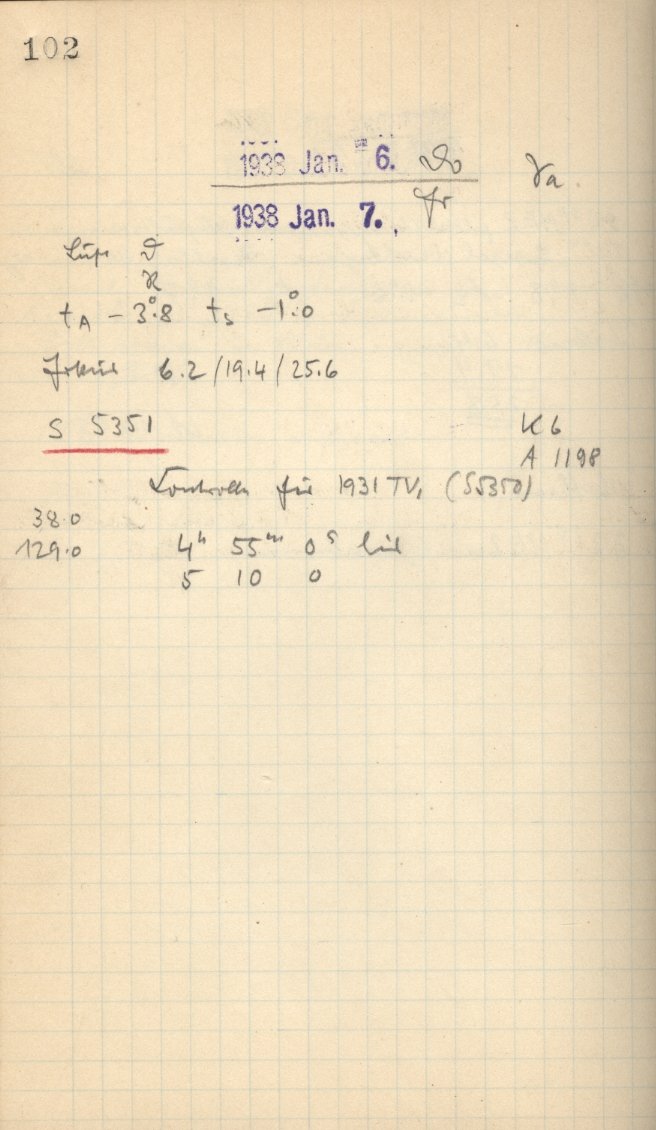 102
1938 Jan. 6. Do
Va.
1938 Jan. 7. Fr
Lupe
tA – 3°.8 ts – 1°.0
6.2 / 19.4 / 25.6
S 5351
K 6
A 1198
Kontrolle für 1931 TV1 (S5350)
38.0
129.0 4h 55m 0s bis
5 10 0